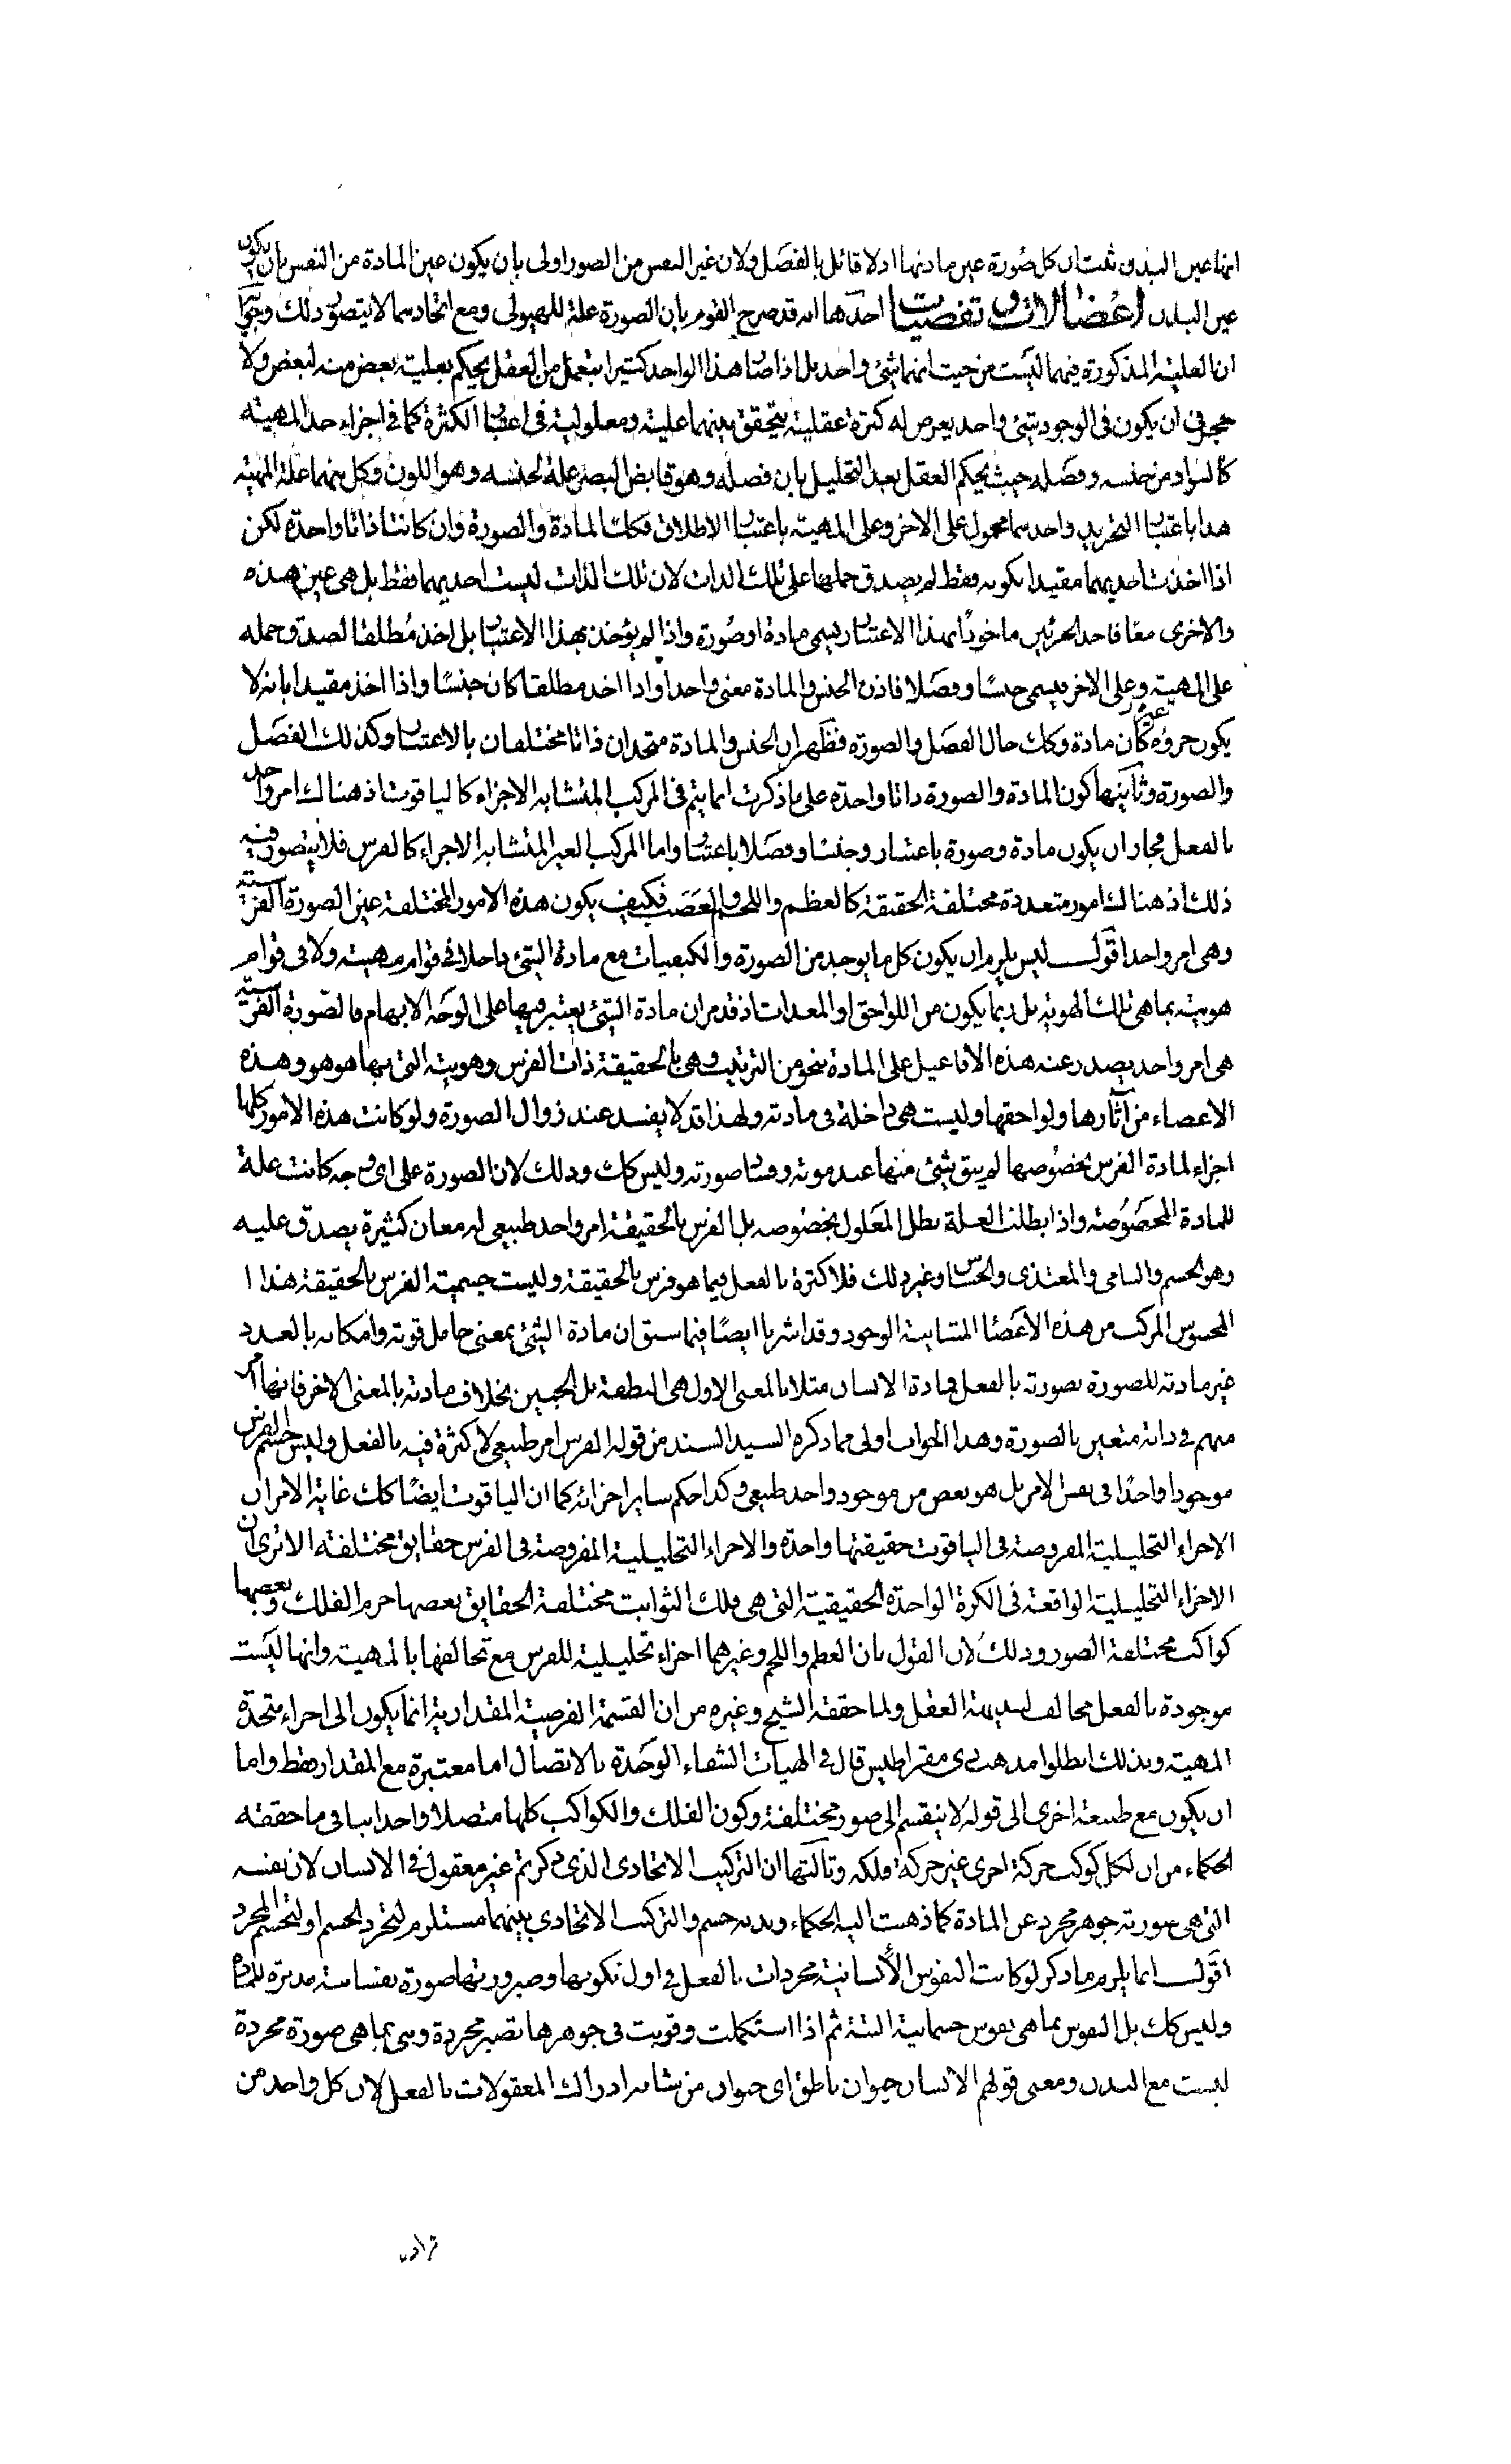 انها عين البدن ثبت ان كل صورة عين مادتها اذ لا قائل بالفصل ولان غير النفس من الصور اولى بان يكون عين المادة من النفس بان يكون
عين البدن اعضالات وتفصيات احدها انه قد صرح القوم بان الصورة علة للهيولى ومع اتحادهما لا يتصور ذلك ويجاب
ان العلية المذكورة فيهما ليست من حيث انهما شئ واحد بل اذا صار هذا الواحد كثيرا بتعمل من العقل يحكم بعلية بعض منه لبعض ولا
حجر في ان يكون في الوجود شئ واحد يعرض له كثرة عقلية يتحقق بينهما علية ومعلولية في اعتبار الكثرة كما في اجزاء حد المهية
كالسواد من جنسه وفصله حيث يحكم العقل بعد التحليل بان فصله وهو قابض البصر علة لجنسه وهو اللون وكل منهما علة المهية
هذا باعتبار التجريد واحدهما محمول على الاخر وعلى المهية باعتبار الاطلاق فكك المادة والصورة وان كانتا ذاتا واحدة لكن
اذا اخذت احديهما مقيدا بكونه فقط لم يصدق حملها على تلك الذات لان تلك الذات ليست احديهما فقط بل هى عين هذه
والاخرى معا فاحد الجزئين ماخوذا بهذا الاعتبار يسمى مادة او صورة واذا لم يؤخذ بهذا الاعتبار بل اخذ مطلقا لصدق حمله
على المهية وعلى الاخر فيسمى جنسا وفصلا فاذن الجنس والمادة معنى واحد واذا اخذ مطلقا كان جنسا واذا اخذ مقيدا بانه لا
يكون جزؤه غيره كان مادة وكك حال الفصل والصورة فظهر ان الجنس والمادة متحدان ذاتا مختلفان بالاعتبار وكذلك الفصل
والصورة وثانيها كون المادة والصورة ذاتا واحدة على ما ذكرت انما يتم في المركب المتشابه الاجزاء كالياقوت اذ هنالك امر واحد
بالفعل فجاز ان يكون مادة وصورة باعتبار وجنسا وفصلا باعتبار واما المركب الغير المتشابه الاجزاء كالفرس فلا يتصور فيه
ذلك اذ هنالك امور متعددة مختلفة الحقيقة كالعظم واللحم والعصب فكيف يكون هذه الامور المختلفة عين الصورة الفرسية
وهى امر واحد اقول ليس يلزم ان يكون كل ما يوجد من الصورة والكيفيات مع مادة الشئ داخلا في قوام مهيته ولا في قوام
هويته بما هى تلك الهوية بل ربما يكون من اللواحق او المعدات اذ قد مر ان مادة الشئ يعتبر فيها على الوجه الابهام فالصورة الفرسية
هى امر واحد يصدر عنه هذه الافاعيل على المادة بنحو من الترتيب وهى بالحقيقة ذات الفرس وهويته التى بها هو هو وهذه
الاعضاء من اثارها ولواحقها وليست هى داخلة في مادته ولهذا قد لا يفسد عند زوال الصورة ولو كانت هذه الامور كلها
اجزاء لمادة الفرس بخصوصها لم يبق شئ منها عند موته وفساد صورته وليس كك وذلك لان الصورة على اى وجه كانت علة
للمادة المخصوصة واذا بطلت العلة بطل المعلول بخصوصه بل الفرس بالحقيقة امر واحد طبيعى له معان كثيرة يصدق عليه
وهو الجسم والنامى والمغتذى والحساس وغير ذلك فلا كثرة بالفعل فيما هو فرس بالحقيقة وليست جسمية الفرس بالحقيقة هذا ا
المحسوس المركب من هذه الاعضاء المتباينة الوجود وقد اشرنا ايضا فيما سبق ان مادة الشئ بمعنى حامل قوته وامكانه بالعدد
غير مادته للصورة بصورته بالفعل فمادة الانسان مثلا بالمعنى الاول هى النطفة بل الجنين بخلاف مادته بالمعنى الاخر فانها امر
مبهم في ذاته متعين بالصورة وهذا الجواب اولى مما ذكره السيد السند من قوله الفرس امر طبيعى لا كثرة فيه بالفعل وليس جسم الفرس
موجودا واحدا في نفس الامر بل هو بعض من موجود واحد طبيعى وكذا حكم ساير اجزائه كما ان الياقوت ايضا كك غاية الامر ان
الاجزاء التحليلية المفروضة في الياقوت حقيقتها واحدة والاجزاء التحليلية المفروضة في الفرس حقايق مختلفة الا ترى ان
الاجزاء التحليلية الواقعة في الكرة الواحدة الحقيقية التى هى فلك الثوابت مختلفة الحقايق بعضها جرم الفلك وبعضها
كواكب مختلفة الصور وذلك لان القول بان العظم واللحم وغيرهما اجزاء تحليلية للفرس مع تخالفها بالمهية وانها ليست
موجودة بالفعل مخالف لبديهة العقل ولما حققه الشيخ وغيره من ان القسمة الفرضية المقدارية انما يكون الى اجزاء متحدة
المهية وبذلك ابطلوا مذهب ذى مقراطيس قال في الهيات الشفاء الوحدة بالاتصال اما معتبرة مع المقدار فقط واما
ان يكون مع طبيعة اخرى الى قوله لا ينقسم الى صور مختلفة وكون الفلك والكواكب كلها متصلا واحدا ينافى ما حققه
الحكماء من ان لكل كوكب حركة اخرى غير حركة فلكه وثالثها ان التركيب الاتحادى الذى ذكرتم غير معقول في الانسان لان نفسه
التى هى صورته جوهر مجرد عن المادة كما ذهبت اليه الحكماء وبدنه جسم والتركيب الاتحادى بينهما مستلزم لتجرد الجسم او لتجسم المجرد
اقول انما يلزم ما ذكر لو كانت النفوس الأنسانية مجردات بالفعل في اول تكونها وصيرورتها صورة نفسانية مدبرة للمادة
وليس كك بل النفوس بما هى نفوس جسمانية البتة ثم اذا استكملت وقويت في جوهرها تصير مجردة وهى بما هى صورة مجردة
ليست مع البدن ومعنى قولهم الانسان حيوان ناطق اى حيوان من شانه ادراك المعقولات بالفعل لان كل واحد من